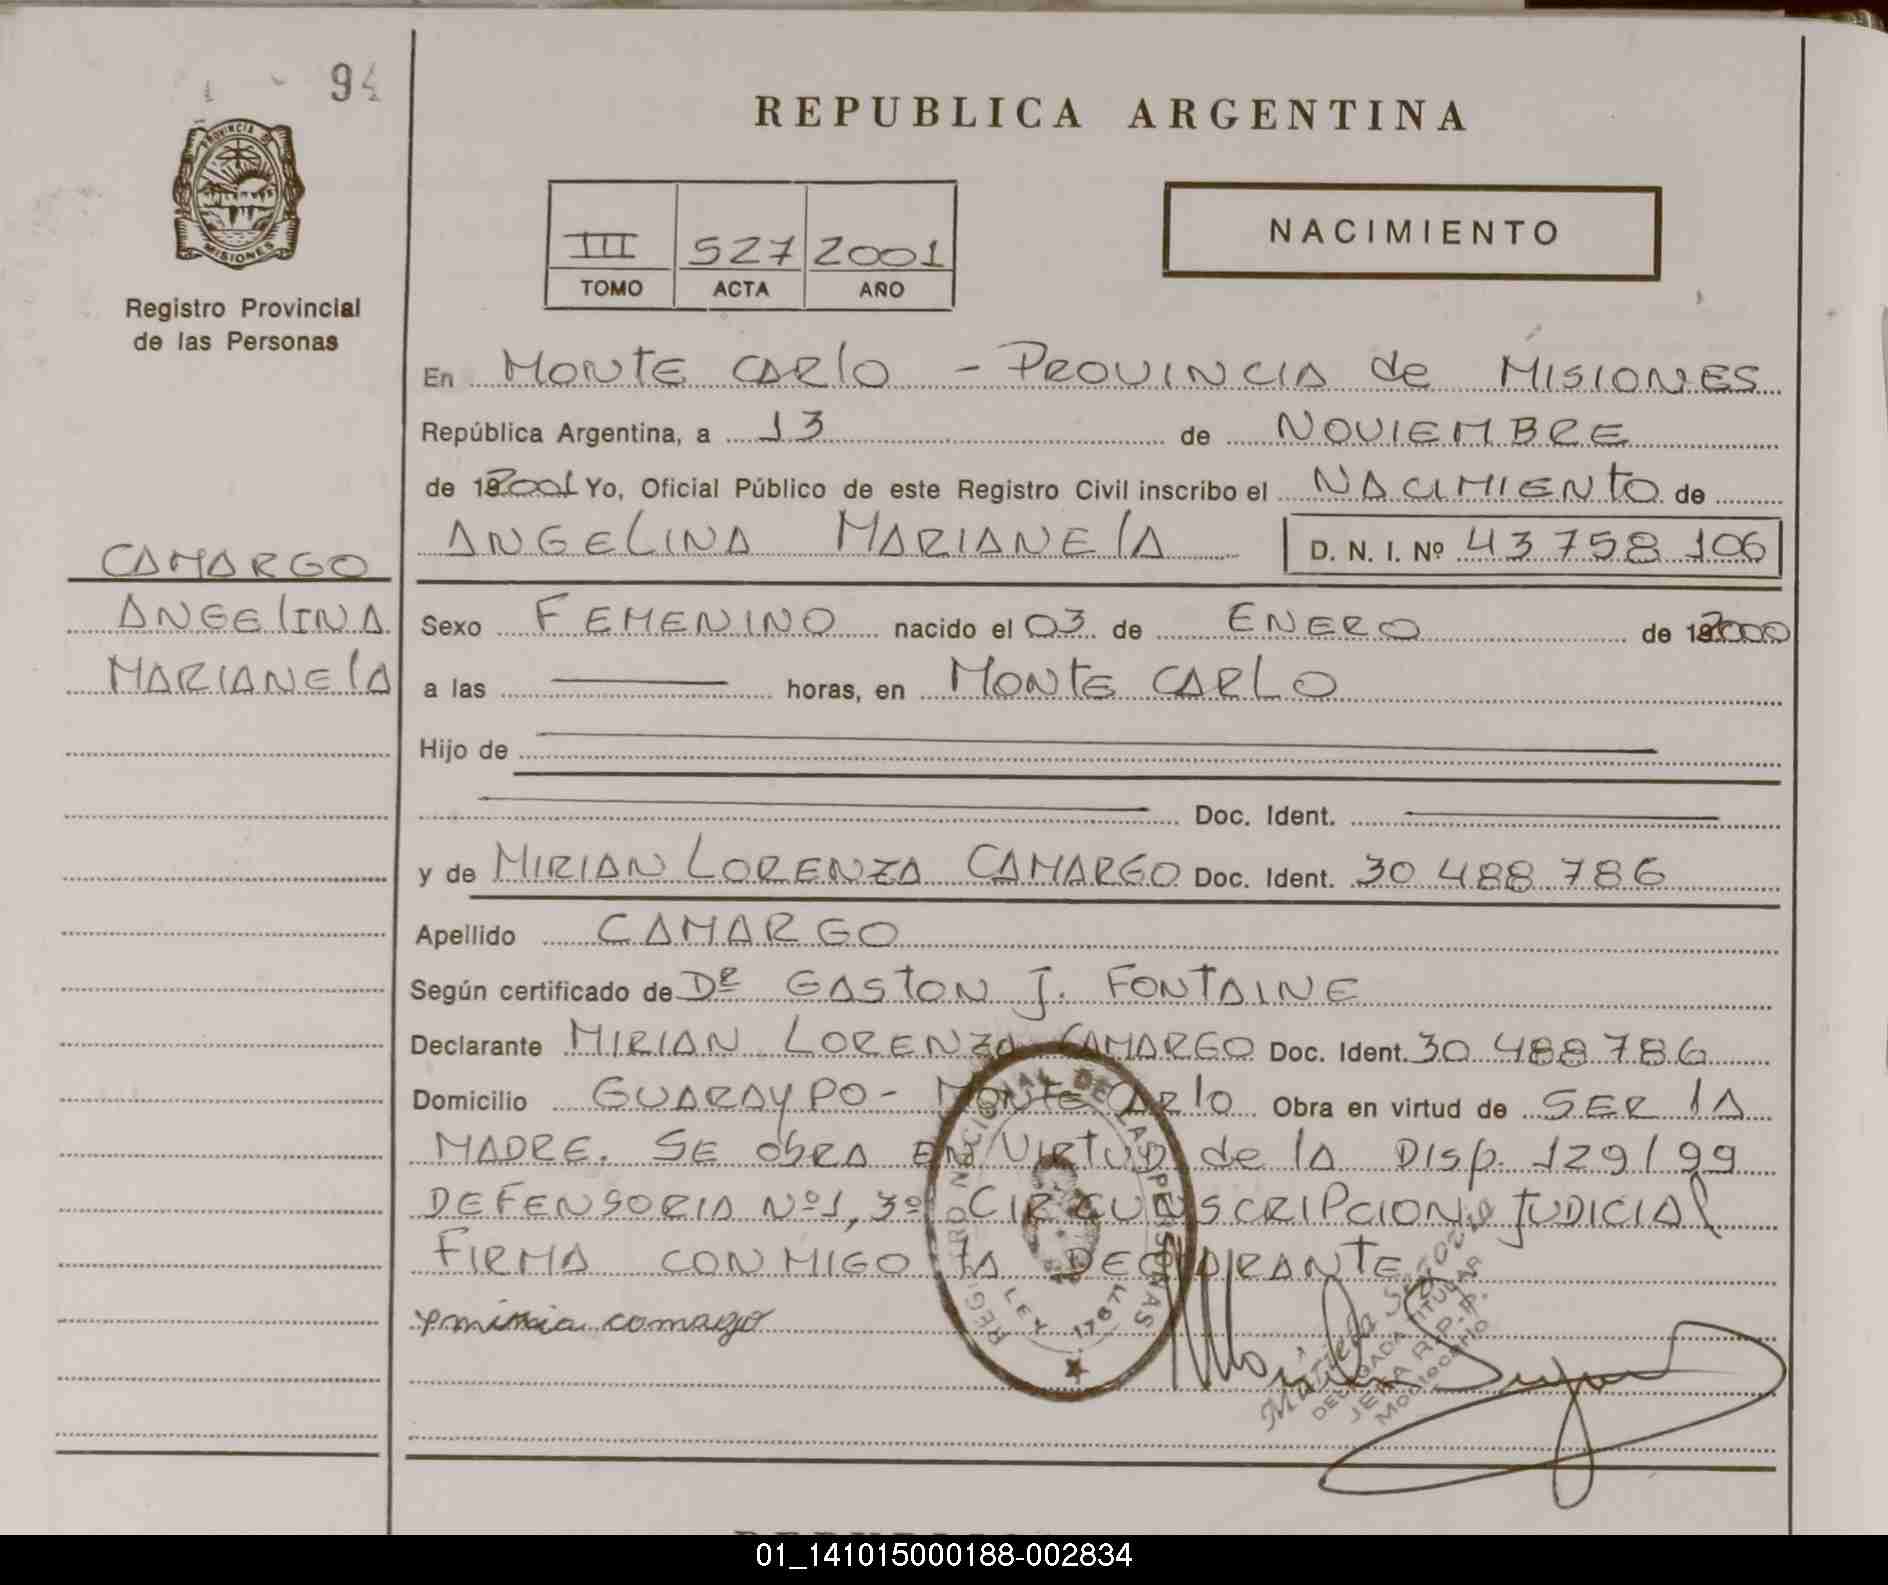 94
REPUBLICA ARGENTINA
PROVINCIA DE
MISIONES
Registro Provincial
de las Personas
III 527 2001
TOMO ACTA AÑO
NACIMIENTO
En MONTE CARLO - PROVINCIA de MISIONES
República Argentina, a 13 de NOVIEMBRE
de 192001 Yo, Oficial Público de este Registro Civil inscribo el NACIMIENTO de
ANGELINA MARIANELA D. N. I. Nº 43 758 106
CAMARGO
ANGELINA
MARIANELA
Sexo FEMENINO nacido el 03 de ENERO de 192000
a las horas, en MONTE CARLO
Hijo de
Doc. Ident.
y de MIRIAN LORENZA CAMARGO Doc. Ident. 30 488 786
Apellido CAMARGO
Según certificado de DR GASTON J. FONTAINE
Declarante MIRIAN LORENZA CAMARGO Doc. Ident. 30 488 786
Domicilio GUARAYPO - MONTE CARLO Obra en virtud de SER LA
MADRE. SE ObRA EN VIRTUD de LA DISP. 129/99
DEFENSORIA Nº1, 3º CIRCUNSCRIPCION JUDICIAL
FIRMA CONMIGO LA DECLARANTE
REGISTRO NACIONAL DE LAS PERSONAS
LEY 17671
DELEGADA TITULAR
Montecarlo
01_141015000188-002834